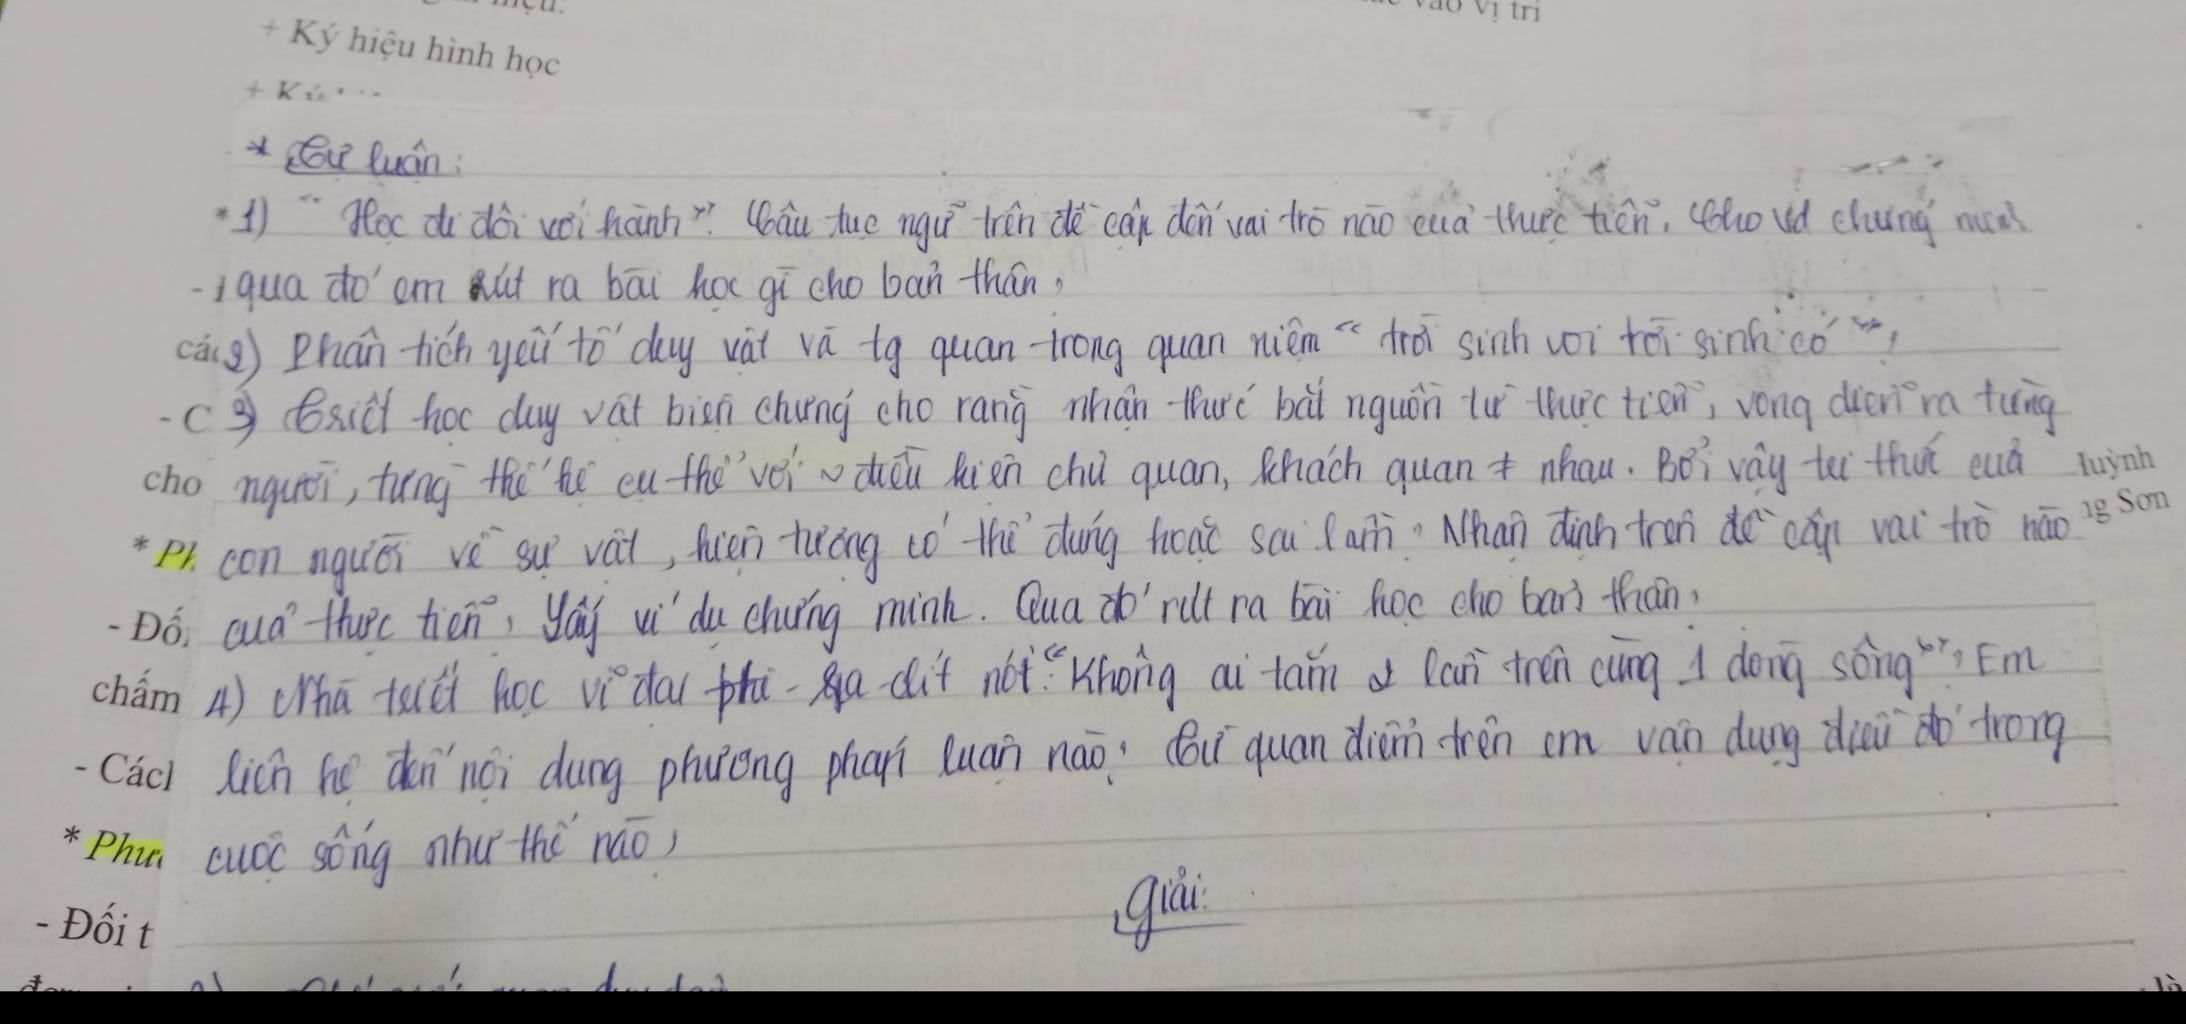 vào vị trí
+ Ký hiệu hình học
* Tự luận:
*1) "Học đi đôi với hành". Câu tục ngữ trên đề cập đến vai trò nào của thực tiễn, Cho vd chứng minh
- qua đó em rút ra bài học gì cho bản thân,
các 2) Phân tích yếu tố duy vật và tg quan trong quan niệm "trời sinh voi trời sinh cỏ",
- C 3) Triết học duy vật biện chứng cho rằng nhận thức bắt nguồn từ thực tiễn, vòng diễn ra từng
cho người, từng thế hệ cụ thể với ~ điều kiện chủ quan, khách quan ≠ nhau. Bởi vậy tri thức của Huỳnh
* Ph con người về sự vật, hiện tượng có thể đúng hoặc sai lầm. Nhận định trên đề cập vai trò nào ng Sơn
- Đối của thực tiễn, Lấy ví dụ chứng minh. Qua đó rút ra bài học cho bản thân,
chấm 4) Nhà triết học vĩ đại phi-ra-clit nói: "Không ai tắm 2 lần trên cùng 1 dòng sông", Em
- Cách liên hệ đến nội dung phương pháp luận nào. Từ quan điểm trên em vận dụng điều đó trong
* Phư cuộc sống như thế nào,
giải:
- Đối t
là